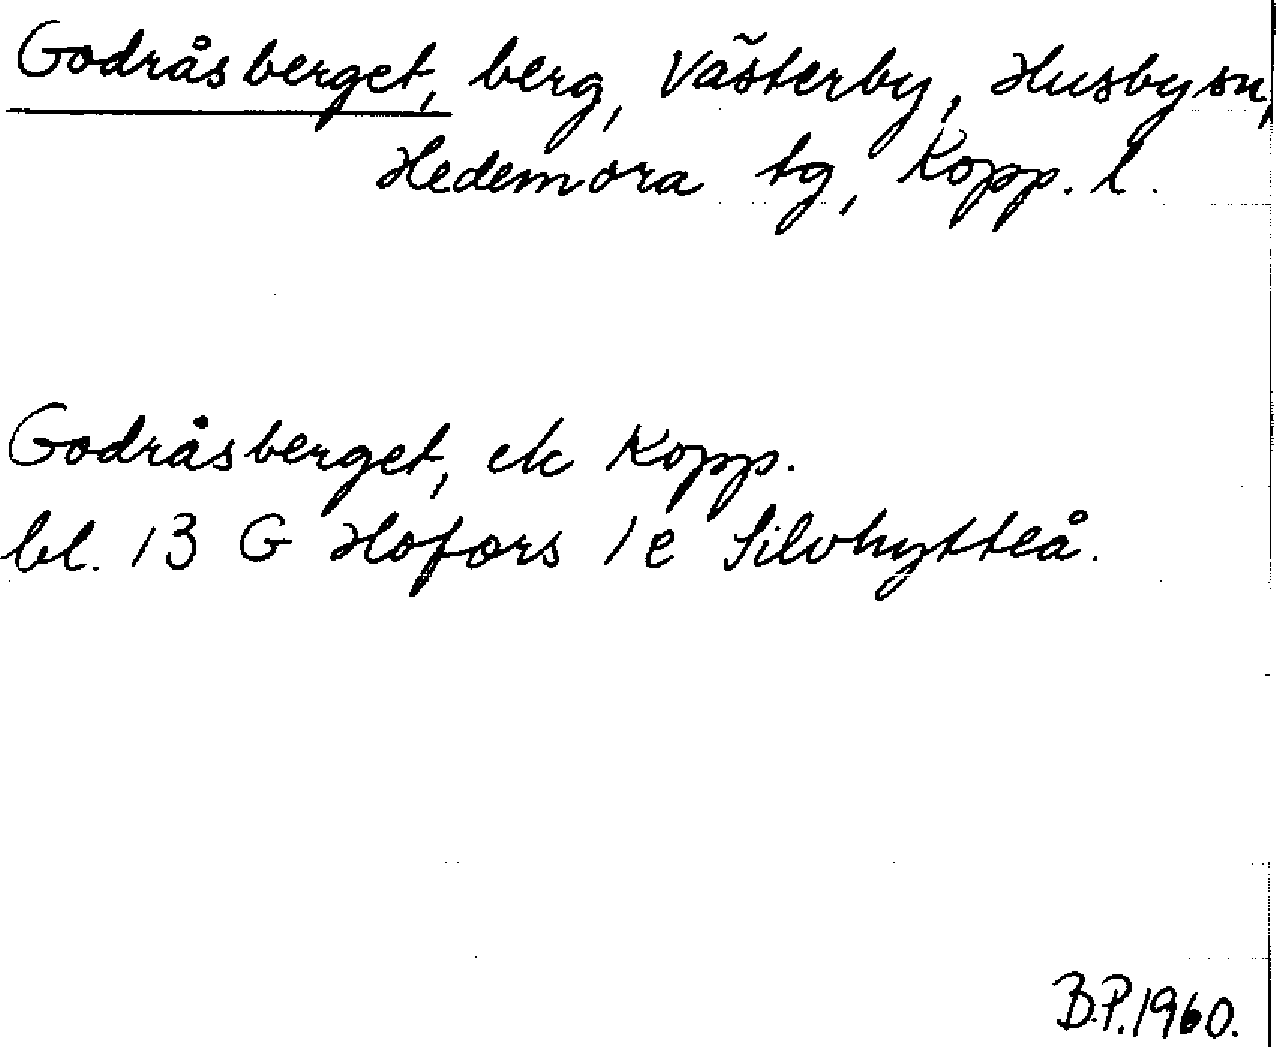 Godråsberget, berg, Västerby, Husby sn,
Hedemora tg, Kopp. l.
Godråsberget, ek Kopp.
bl. 13 G Hofors 1e Silvhytteå.
B.P. 1960.